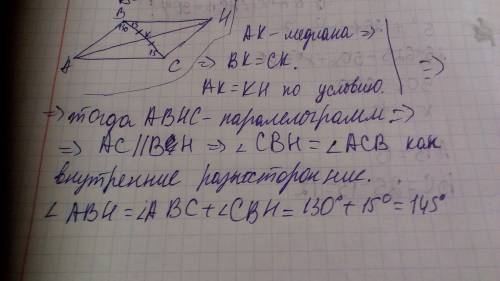 B
H
130
15
A
C
AK - медиана =>
=> BK = CK.
AK = KH по условию.
=>
=> тогда ABHC - паралелограмм =>
=> AC || BH => ∠CBH = ∠ACB как
внутренние разносторонние.
∠ABH = ∠ABC + ∠CBH = 130° + 15° = 145°